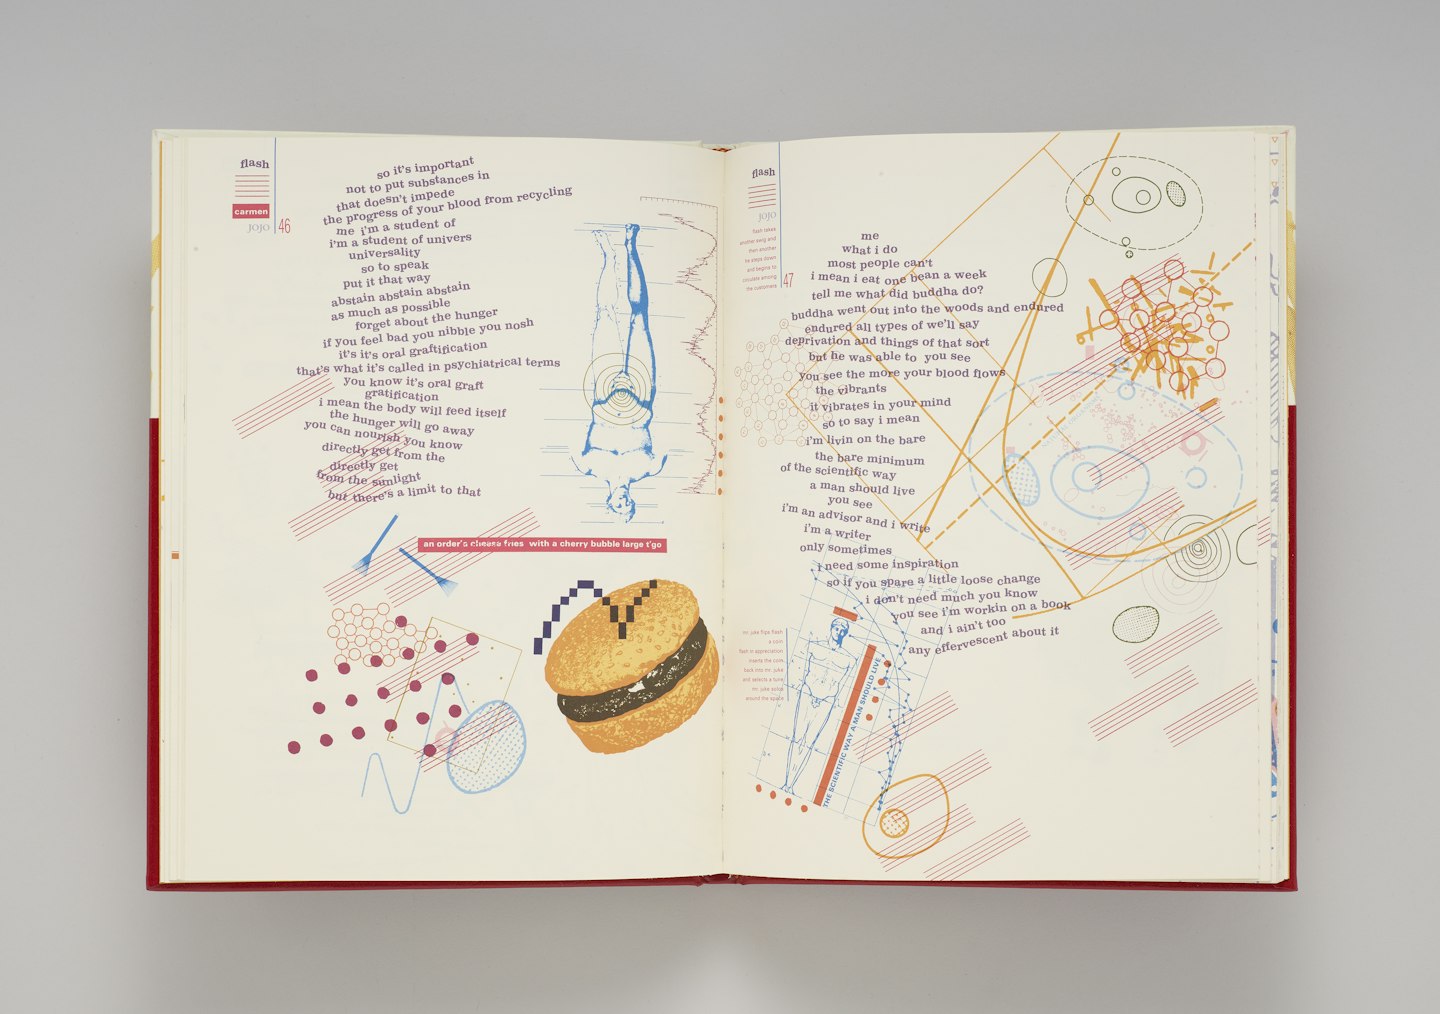 flash
carmen
JOJO 46
so it's important
not to put substances in
that doesn't impede
the progress of your blood from recycling
me i'm a student of
i'm a student of univers
universality
so to speak
put it that way
abstain abstain abstain
as much as possible
forget about the hunger
if you feel bad you nibble you nosh
it's it's oral graftification
that's what it's called in psychiatrical terms
you know it's oral graft
gratification
i mean the body will feed itself
the hunger will go away
you can nourish you know
directly get from the
directly get
from the sunlight
but there's a limit to that
an order's cheese fries with a cherry bubble large t'go
flash
JOJO
flash takes
another swig and
then another
he steps down
and begins to
circulate among
the customers
47
me
what i do
most people can't
i mean i eat one bean a week
tell me what did buddha do?
buddha went out into the woods and endured
endured all types of we'll say
deprivation and things of that sort
but he was able to you see
you see the more your blood flows
the vibrants
it vibrates in your mind
so to say i mean
i'm livin on the bare
the bare minimum
of the scientific way
a man should live
you see
i'm an advisor and i write
i'm a writer
only sometimes
i need some inspiration
so if you spare a little loose change
i don't need much you know
you see i'm workin on a book
and i ain't too
any effervescent about it
mr. juke flips flash
a coin
flash in appreciation
inserts the coin
back into mr. juke
and selects a tune
mr. juke solos
around the space
THE SCIENTIFIC WAY A MAN SHOULD LIVE